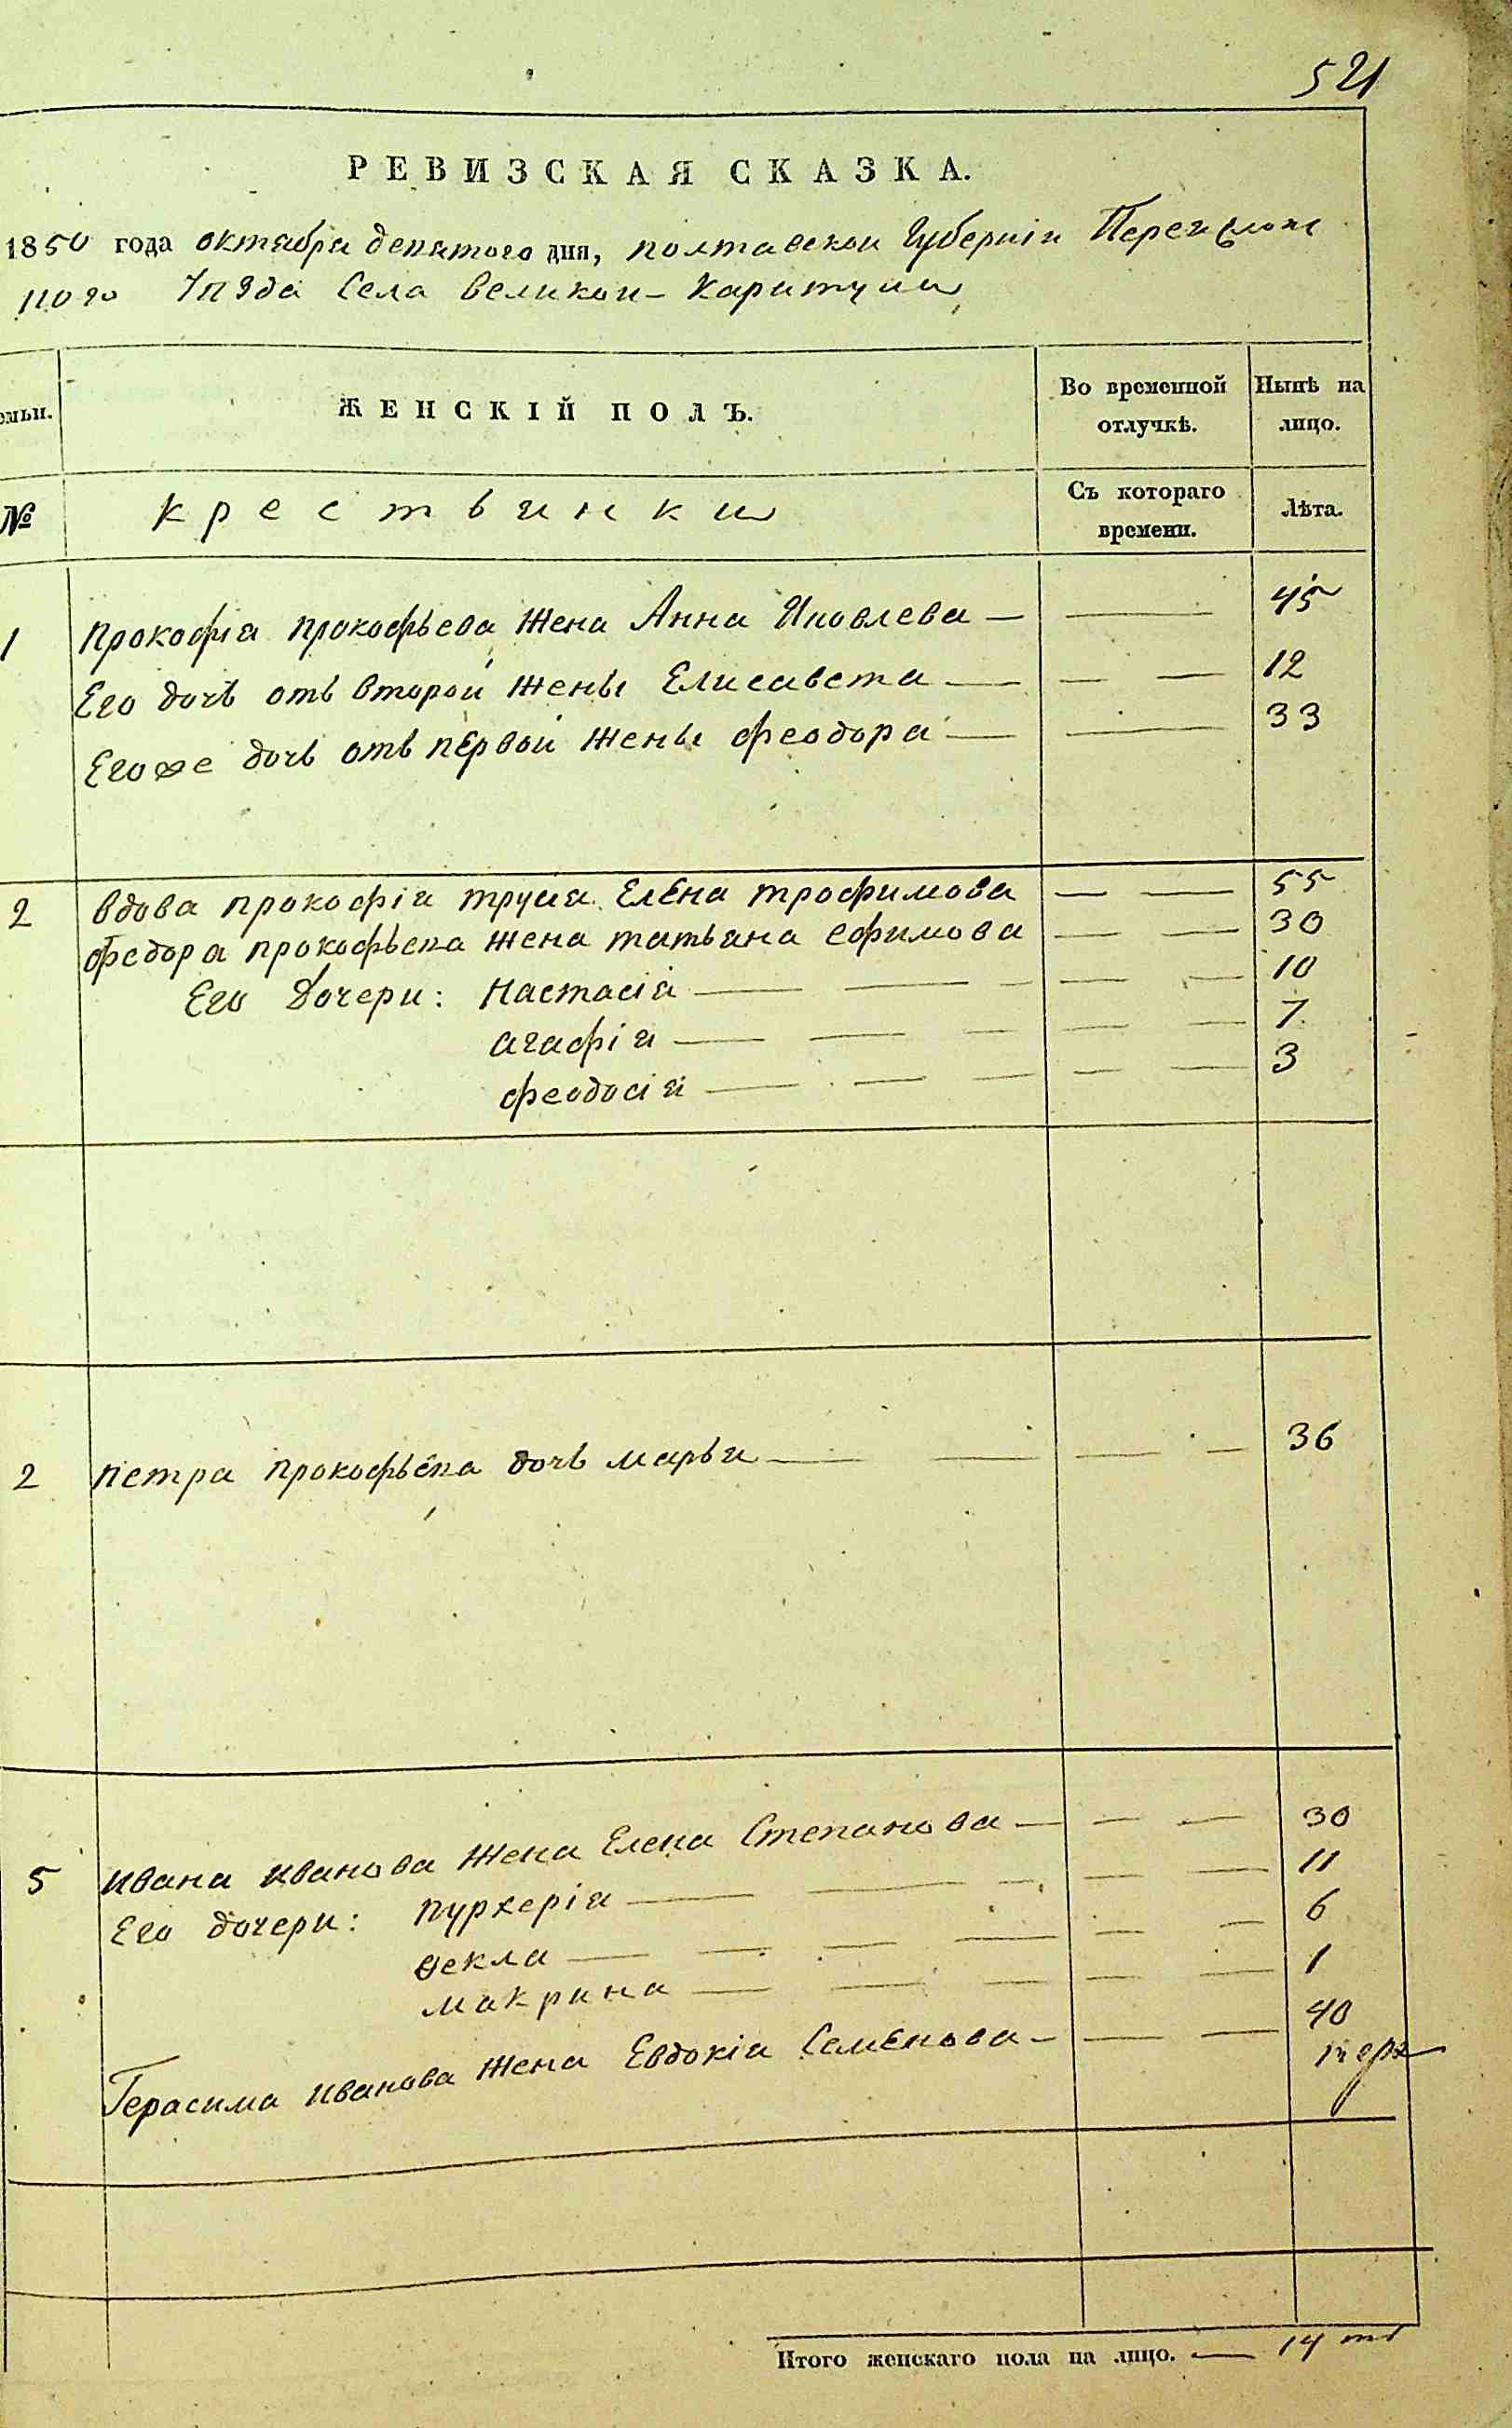 521
РЕВИЗСКАЯ СКАЗКА.
1850 года октября девятого дня, полтавской Губерніи Переяслов
ного Уѣзда Села великой-Каратули
емьи.
ЖЕНСКІЙ ПОЛЪ.
Во временной отлучкѣ.
Нынѣ на лицо.
№
крестьянки
Съ котораго времени.
Лѣта.
1 Прокофія прокофьева жена Анна Яковлева — — 45
Его дочь отъ второй жены Елисавета — — — 12
Егоже дочь отъ первой жены феодора — — 33
2 вдова прокофія труша Елена трофимова — — 55
федора прокофьева жена татьяна ефимова — — 30
Его Дочери: Настасія — — — — — 10
агафія — — — — — 7
феодосія — — — — — 3
2 петра прокофьева дочь марья — — — — 36
5 ивана иванова жена Елена Степанова — — — 30
Его дочери: пурхерія — — — — — 11
Ѳекла — — — — — — 6
макрина — — — — — 1
Герасима иванова жена Евдокія Семенова — — — 40
Итого женскаго пола на лицо. — 14